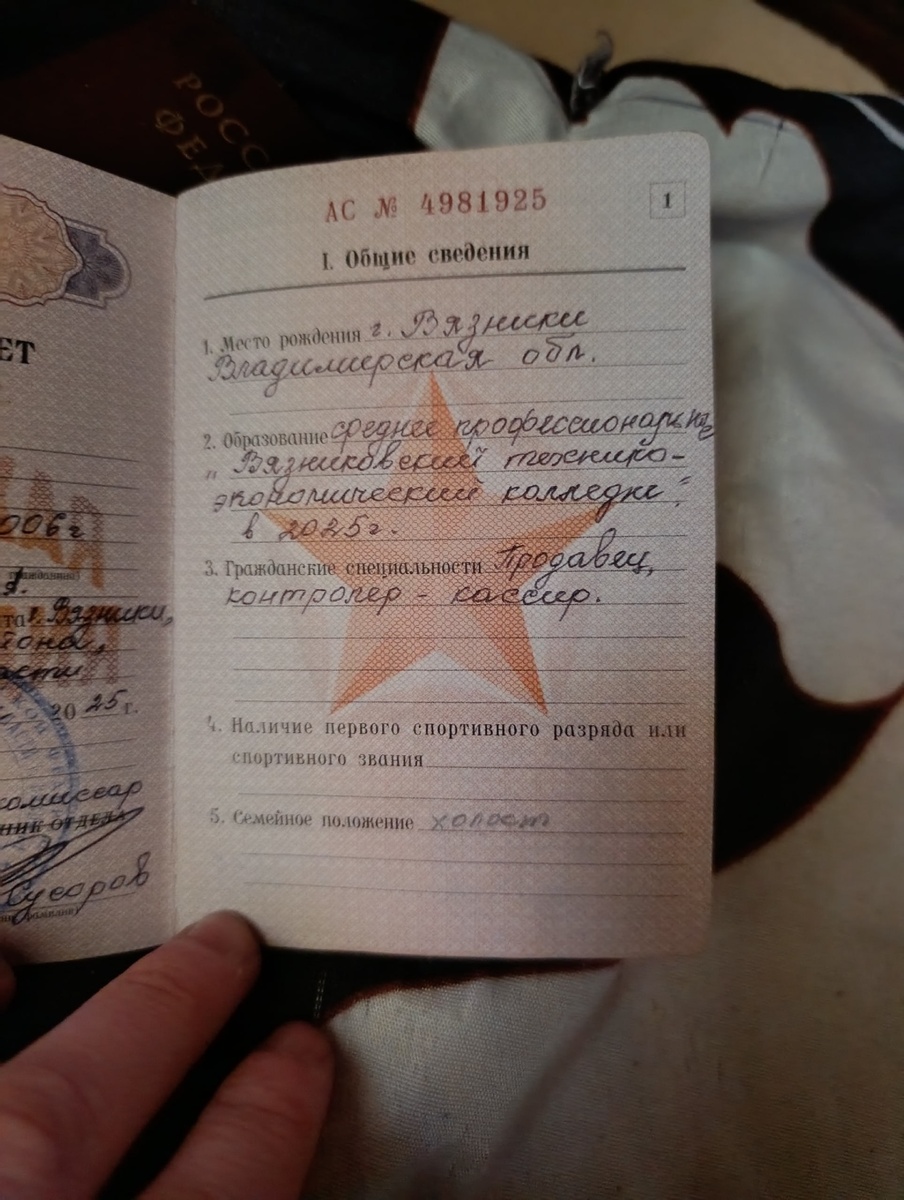 РОСС
ФЕД
ЕТ
006г
та г. Вязники,
она,
асти
20 25 г.
комиссар
НИК ОТДЕЛА
Сусоров
АС № 4981925
1
I. Общие сведения
1. Место рождения г. Вязники
Владимирская обл.
2. Образование среднее профессиональное
"Вязниковский технико-
экономический колледж"
в 2025г.
3. Гражданские специальности Продавец,
контролер - кассир.
4. Наличие первого спортивного разряда или
спортивного звания
5. Семейное положение холост